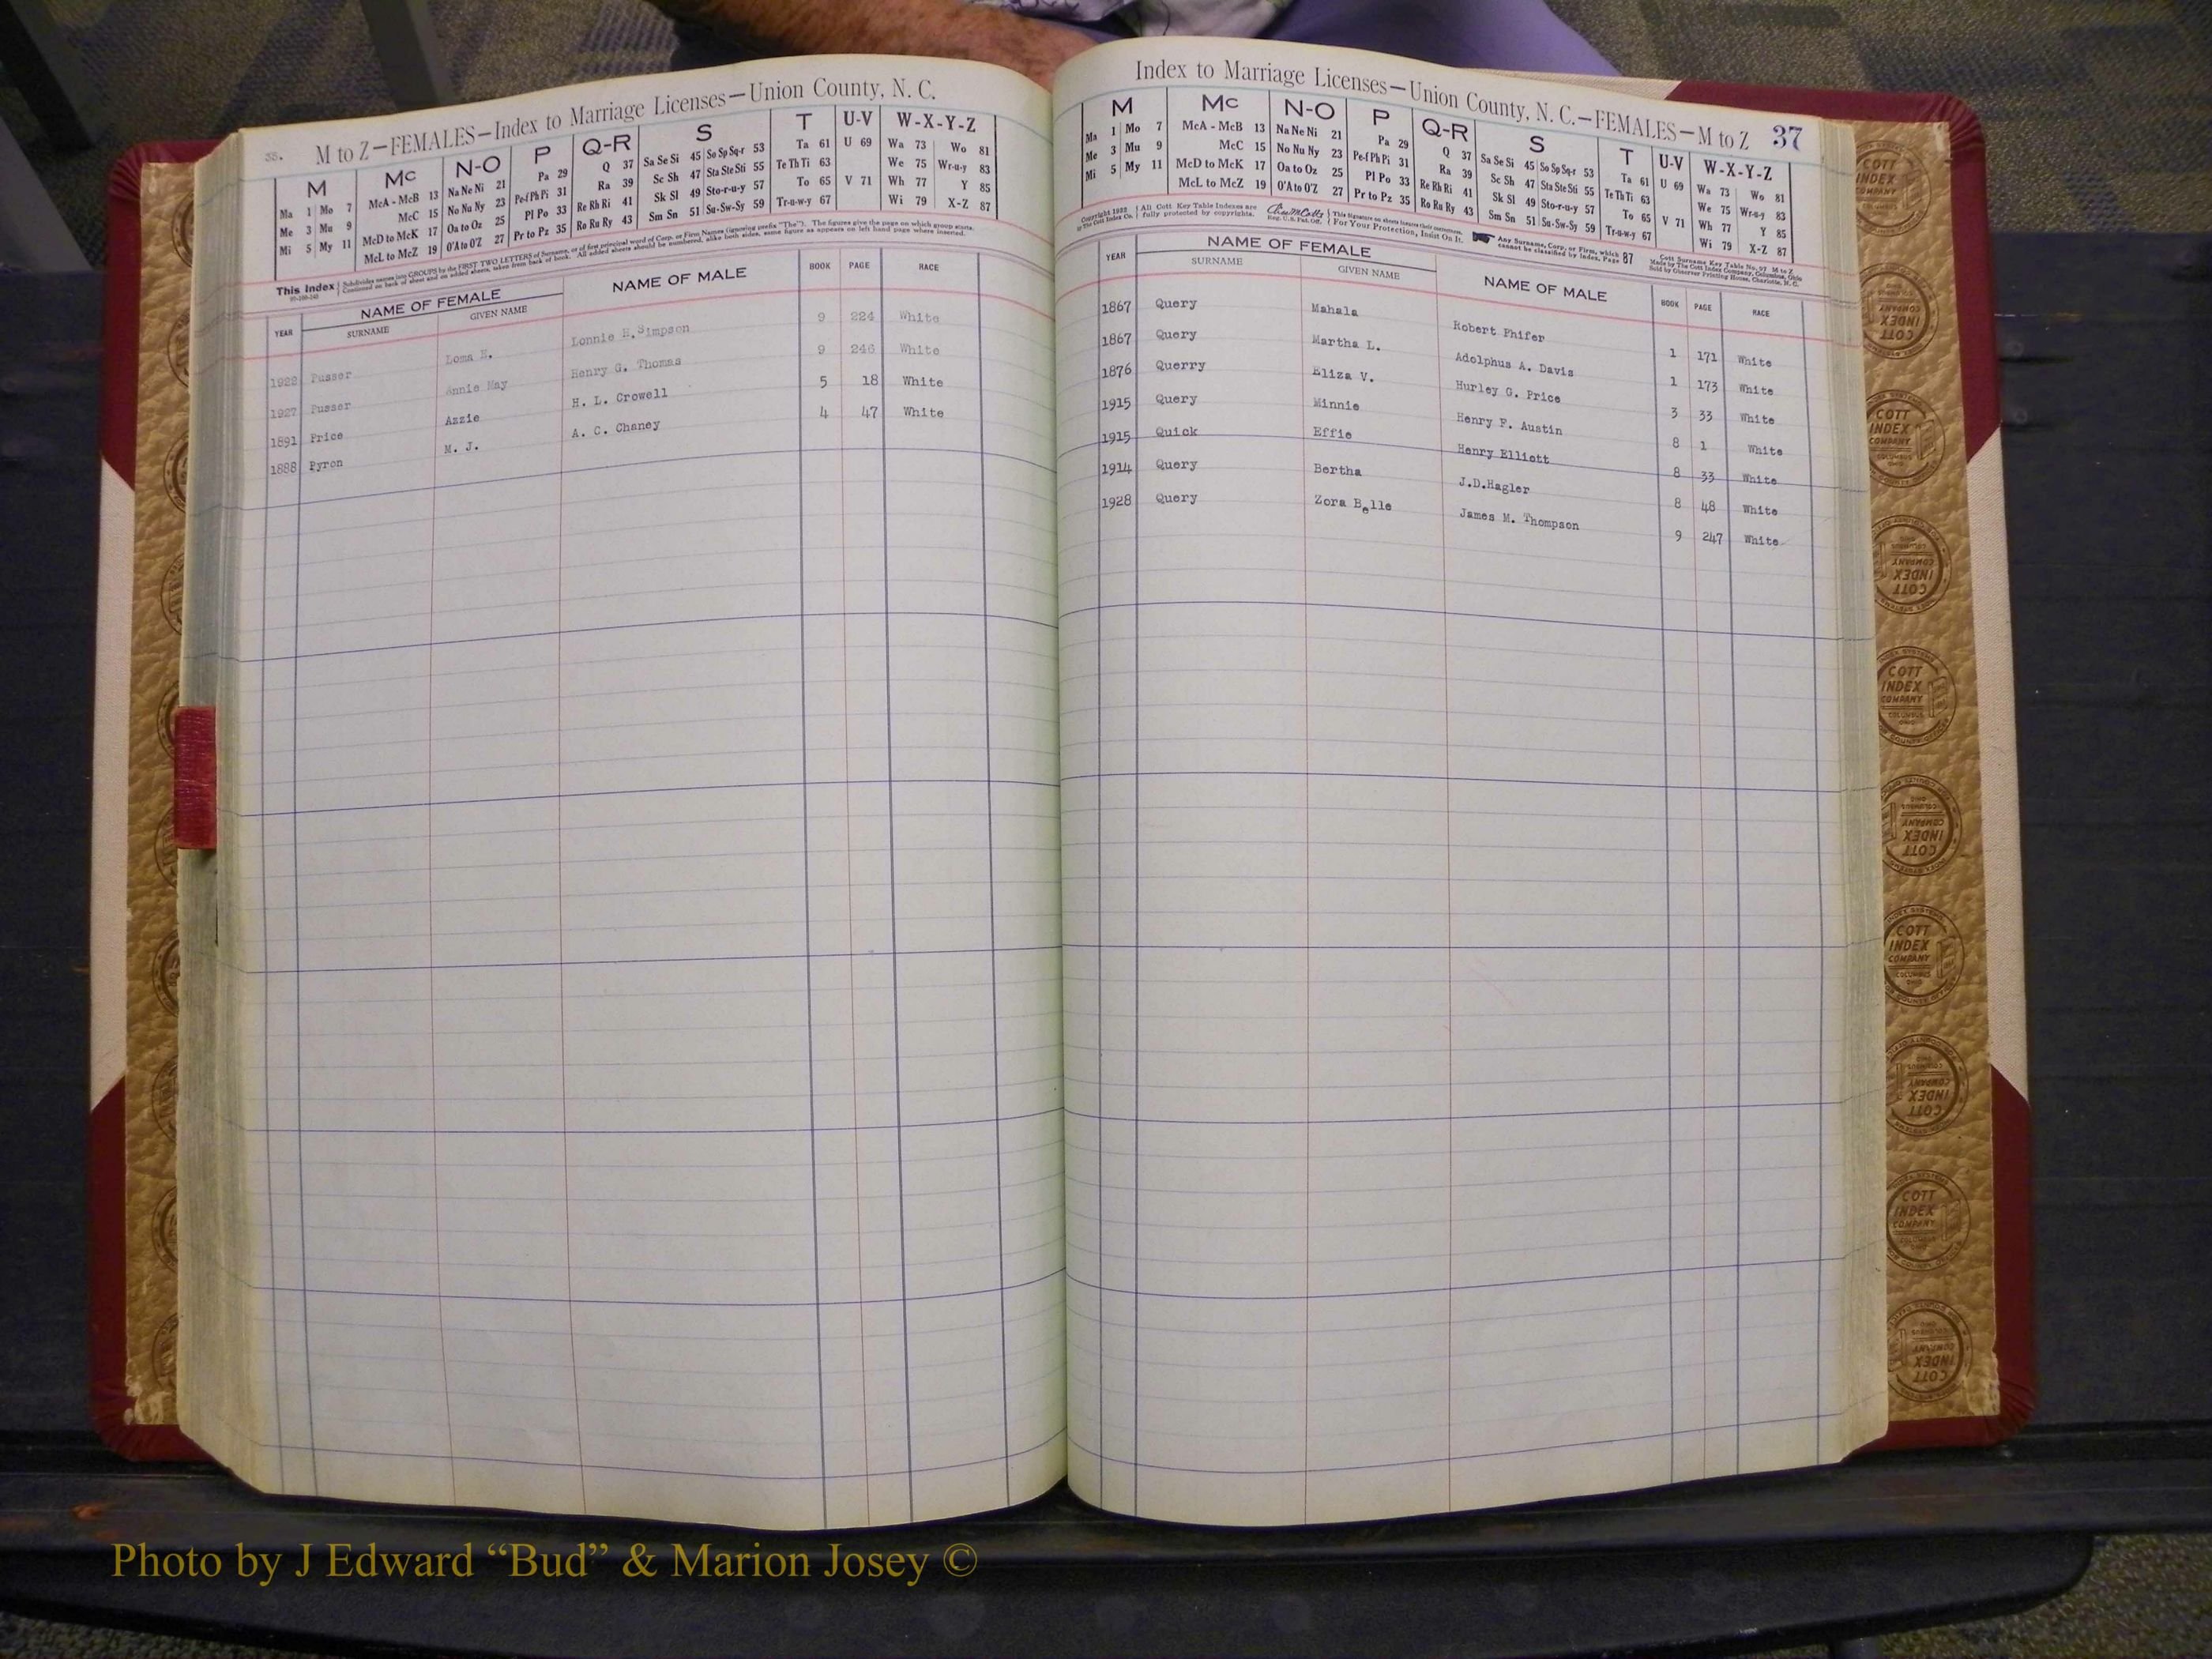 35. M to Z—FEMALES—Index to Marriage Licenses—Union County, N. C.
M Mc N-O P Q-R S T U-V W-X-Y-Z
Ma 1 Mo 7 McA - McB 13 Na Ne Ni 21 Pa 29 Q 37 Sa Se Si 45 So Sp Sq-r 53 Ta 61 U 69 Wa 73 Wo 81
Me 3 Mu 9 McC 15 No Nu Ny 23 Pe-f Ph Pi 31 Ra 39 Sc Sh 47 Sta Ste Sti 55 Te Th Ti 63 We 75 Wr-u-y 83
Mi 5 My 11 McD to McK 17 Oa to Oz 25 Pl Po 33 Re Rh Ri 41 Sk Sl 49 Sto-r-u-y 57 To 65 V 71 Wh 77 Y 85
McL to McZ 19 O'A to O'Z 27 Pr to Pz 35 Ro Ru Ry 43 Sm Sn 51 Su-Sw-Sy 59 Tr-u-w-y 67 Wi 79 X-Z 87
This Index Subdivides names into GROUPS by the FIRST TWO LETTERS of Surname, or of first principal word of Corp. or Firm Names (ignoring prefix "The"). The figures give the page on which group starts.
Continued on back of sheet and on added sheets, taken from back of book. All added sheets should be numbered, alike both sides, same figure as appears on left hand page where inserted.
YEAR NAME OF FEMALE NAME OF MALE BOOK PAGE RACE
SURNAME GIVEN NAME
1922 Pusser Loma E. Lonnie H. Simpson 9 224 White
1927 Pusser Annie May Henry G. Thomas 9 246 White
1891 Price Azzie H. L. Crowell 5 18 White
1888 Pyron M. J. A. C. Chaney 4 47 White
Index to Marriage Licenses—Union County, N. C.—FEMALES—M to Z 37
M Mc N-O P Q-R S T U-V W-X-Y-Z
Ma 1 Mo 7 McA - McB 13 Na Ne Ni 21 Pa 29 Q 37 Sa Se Si 45 So Sp Sq-r 53 Ta 61 U 69 Wa 73 Wo 81
Me 3 Mu 9 McC 15 No Nu Ny 23 Pe-f Ph Pi 31 Ra 39 Sc Sh 47 Sta Ste Sti 55 Te Th Ti 63 We 75 Wr-u-y 83
Mi 5 My 11 McD to McK 17 Oa to Oz 25 Pl Po 33 Re Rh Ri 41 Sk Sl 49 Sto-r-u-y 57 To 65 V 71 Wh 77 Y 85
McL to McZ 19 O'A to O'Z 27 Pr to Pz 35 Ro Ru Ry 43 Sm Sn 51 Su-Sw-Sy 59 Tr-u-w-y 67 Wi 79 X-Z 87
Copyright by The Cott Index Co. All Cott Key Table Indexes are fully protected by copyrights. Reg. U.S. Pat. Off. For Your Protection, Insist On It.
Any Surname, Corp. or Firm, which cannot be classified by Index, Page 87
Cott Surname Key Table No. 97 M to Z
Made by The Cott Index Company, Columbus, Ohio
Sold by Observer Printing House, Charlotte, N. C.
YEAR NAME OF FEMALE NAME OF MALE BOOK PAGE RACE
SURNAME GIVEN NAME
1867 Query Mahala Robert Phifer 1 171 White
1867 Query Martha L. Adolphus A. Davis 1 173 White
1876 Querry Eliza V. Hurley G. Price 3 33 White
1915 Query Minnie Henry F. Austin 8 1 White
1915 Quick Effie Henry Elliott 8 33 White
1914 Query Bertha J.D.Hagler 8 48 White
1928 Query Zora Belle James M. Thompson 9 247 White
COTT INDEX COMPANY COLUMBUS OHIO
Photo by J Edward “Bud” & Marion Josey ©